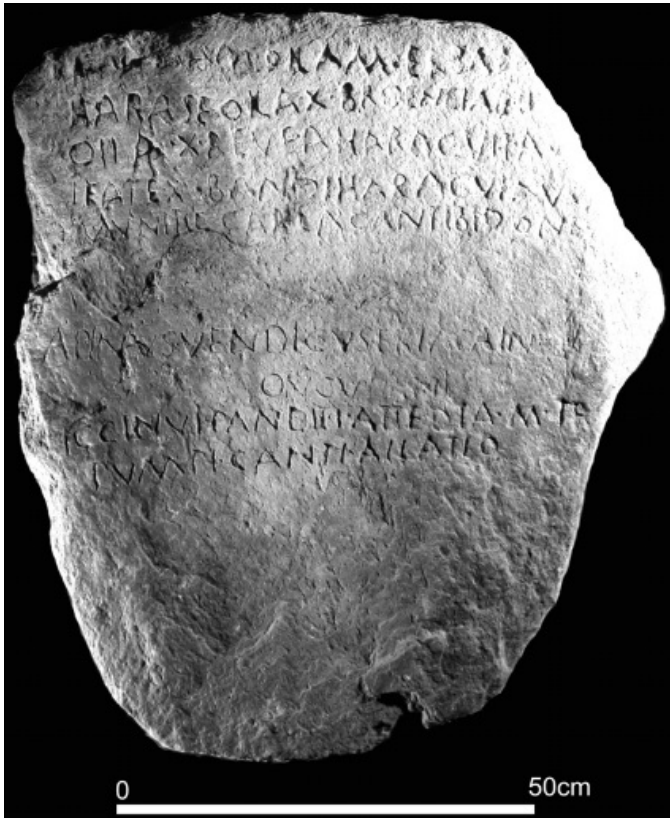 OILAM·ERBAM
HARASE·OILA·X·BROENEIAE·H
OILA·X·REVE AHARACVI
IEATE·X·BANDI HARACVI AV
MVNITIE CARIA CANTIBIDONE
APINVS·VENDICVS·ERIACAINV
OVOVIANI
ICCINVI·PANDITI·ATTEDIA·M·TR
PVMPI·CANTI·AILATIO